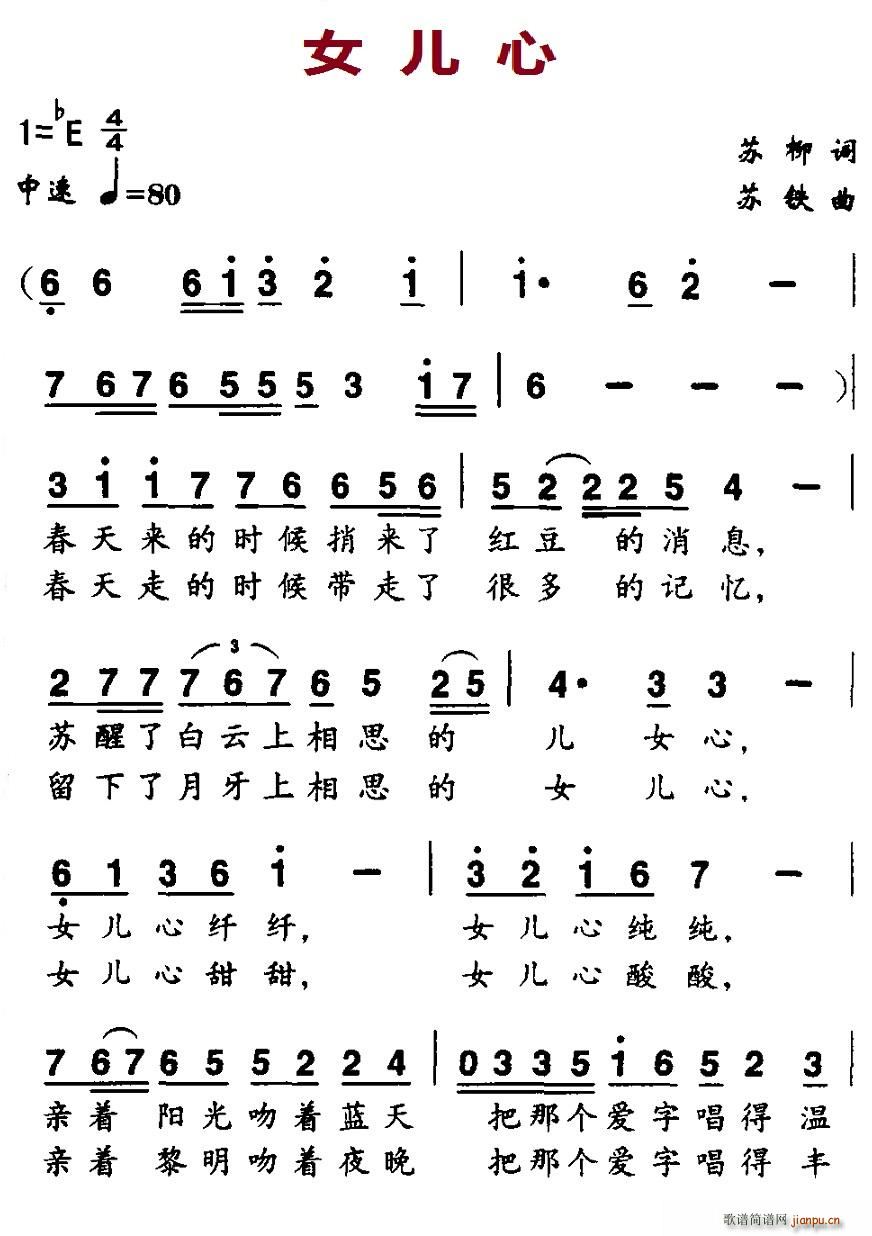 女儿心
1=♭E 4/4
苏柳 词
中速 ♩=80
苏铁 曲
(6 6 6 1 3 2 1 | 1· 6 2 — |
7 6 7 6 5 5 5 3 1 7 | 6 — — — )|
3 1 1 7 7 6 6 5 6 | 5 2 2 2 5 4 — |
春天来的时候捎来了 红豆 的消息,
春天走的时候带走了 很多 的记忆,
3
2 7 7 7 6 7 6 5 2 5 | 4· 3 3 — |
苏醒了白云上相思的 儿 女心,
留下了月牙上相思的 女 儿心.
6 1 3 6 1 — | 3 2 1 6 7 — |
女儿心纤纤, 女儿心纯纯,
女儿心甜甜, 女儿心酸酸,
7 6 7 6 5 5 2 2 4 | 0 3 3 5 1 6 5 2 3 |
亲着 阳光吻着蓝天 把那个爱字唱得温
亲着 黎明吻着夜晚 把那个爱字唱得丰
歌谱简谱网 jianpu.cn